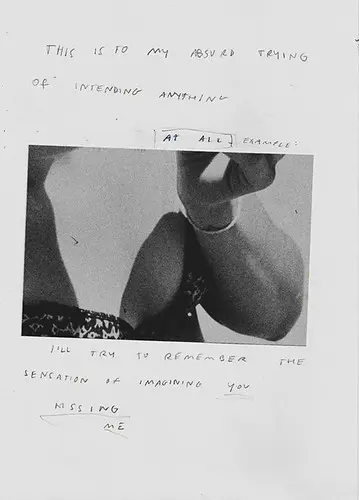 THIS IS TO MY ABSURD TRYING
OF INTENDING ANYTHING
[AT ALL] EXAMPLE:
I'LL TRY TO REMEMBER THE
SENSATION OF IMAGINING YOU
MISSING
ME